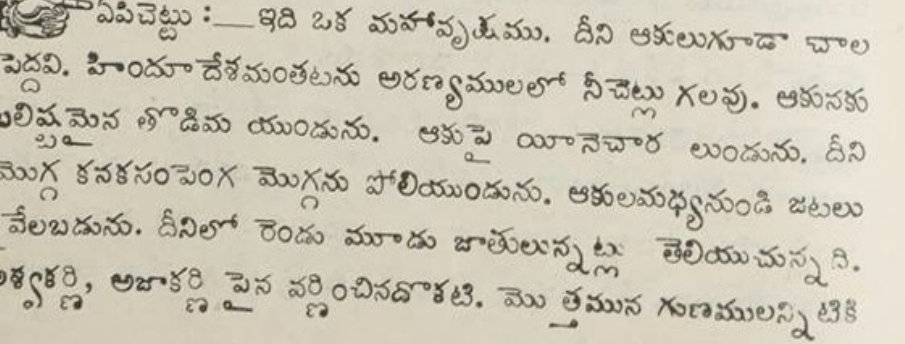 ఏపిచెట్టు :— ఇది ఒక మహావృక్షము. దీని ఆకులుగూడా చాల
పెద్దవి. హిందూదేశమంతటను అరణ్యములలో నీచెట్లు గలవు. ఆకునకు
బలిష్ఠమైన తొడిమ యుండును. ఆకుపై యీనెచార లుండును. దీని
మొగ్గ కనకసంపెంగ మొగ్గను పోలియుండును. ఆకులమధ్యనుండి జటలు
వేలబడును. దీనిలో రెండు మూడు జాతులున్నట్లు తెలియుచున్నది.
అశ్వకర్ణి, అజాకర్ణి పైన వర్ణించినదొకటి. మొత్తమున గుణములన్నిటికి